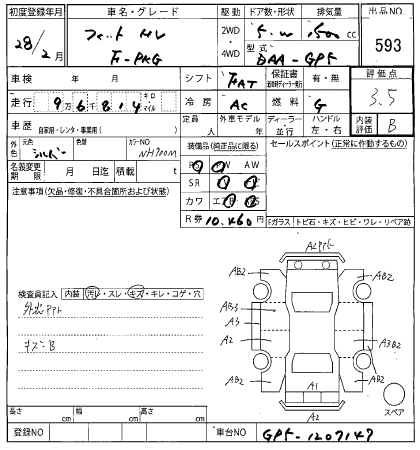 初度登録年月 車名・グレード 駆動 ドア数・形状 排気量 出品NO
28/2月 フィット HV 2WD 5 1500 cc 593
F-PKG 4WD 型式 DAA-GPF
車検 年 月 シフト FAT 保証書 有・無 評価点
走行 9万6千814 キロ マイル 冷房 AC 燃料 G 3.5
車歴 自家用・レンタ・事業用( ) 定員 人 外車モデル 年 ディーラー・並行 ハンドル 左・右 内装評価 B
外色 元色 シルバー 色替 カラーNO NH700M 装備品(純正品に限る) セールスポイント(正常に作動するもの)
名義変更期限 月 日迄 積載 t PW AW
注意事項(欠品・修復・不具合個所および状態) SR
カワ
R券 10,460円 Fガラス トビ石・キズ・ヒビ・ワレ・リペア跡
A2PキE
AB2 AB2
検査員記入 内装 汚レ・スレ・キズ・キレ・コゲ・穴
AB3
A3
キズ:B A2 A3B2
AB2 AB2
A1
スペア
長さ cm 幅 cm 高さ cm A2
登録NO 車台NO GPF-1207147